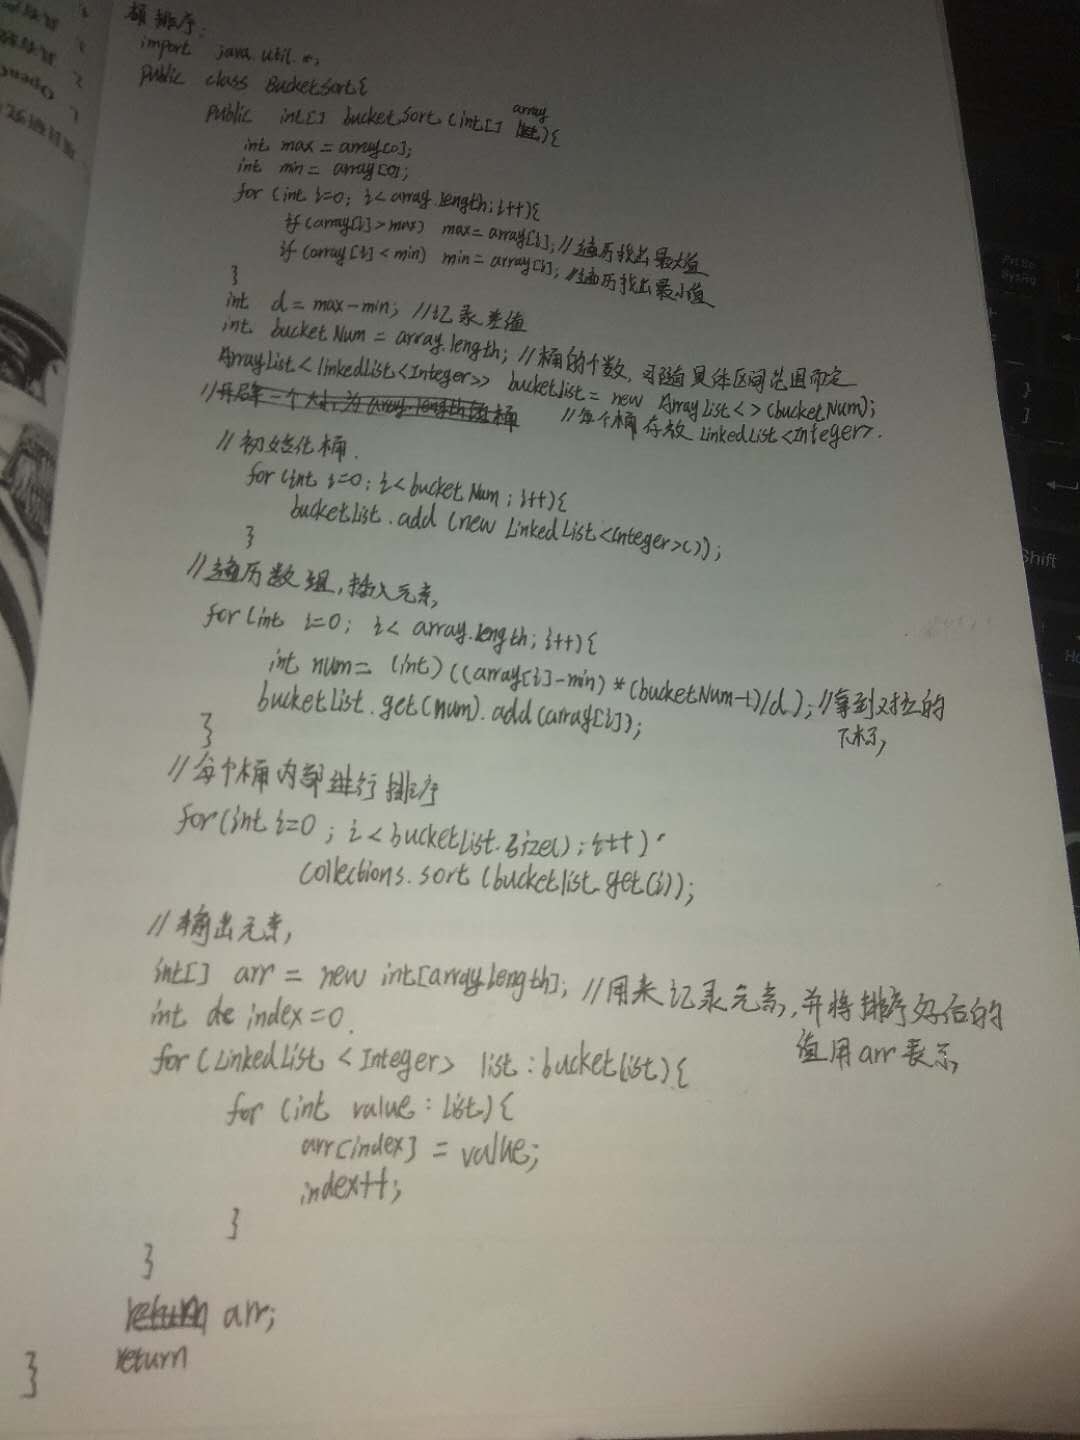 桶排序:
import java.util.*;
public class BucketSort{
public int[] bucketSort(int[] array){
int max = array[0];
int min = array[0];
for (int i=0; i<array.length; i++){
if (array[i]>max) max = array[i]; //遍历找出最大值
if (array[i]<min) min = array[i]; //遍历找出最小值
}
int d = max-min; //记录差值
int bucketNum = array.length; //桶的个数,可随具体区间范围而定
ArrayList<linkedList<Integer>> bucketlist = new ArrayList<>(bucketNum);
//每个桶存放 LinkedList<Integer>.
//初始化桶.
for (int i=0; i<bucketNum; i++){
bucketlist.add (new LinkedList<Integer>());
}
//遍历数组,插入元素,
for (int i=0; i< array.length; i++){
int num= (int) ((array[i]-min)*(bucketNum-1)/d); //拿到对应的
下标,
bucketList.get(num).add(array[i]);
}
//每个桶内部进行排序
for(int i=0; i<bucketlist.size(); i++)
Collections.sort (bucketlist.get(i));
//输出元素,
int[] arr = new int[array.length]; //用来记录元素,并将排序好后的
值用arr表示
int index=0.
for (LinkedList <Integer> list : bucketlist){
for (int value : list){
arr[index] = value;
index++;
}
}
arr;
return
}